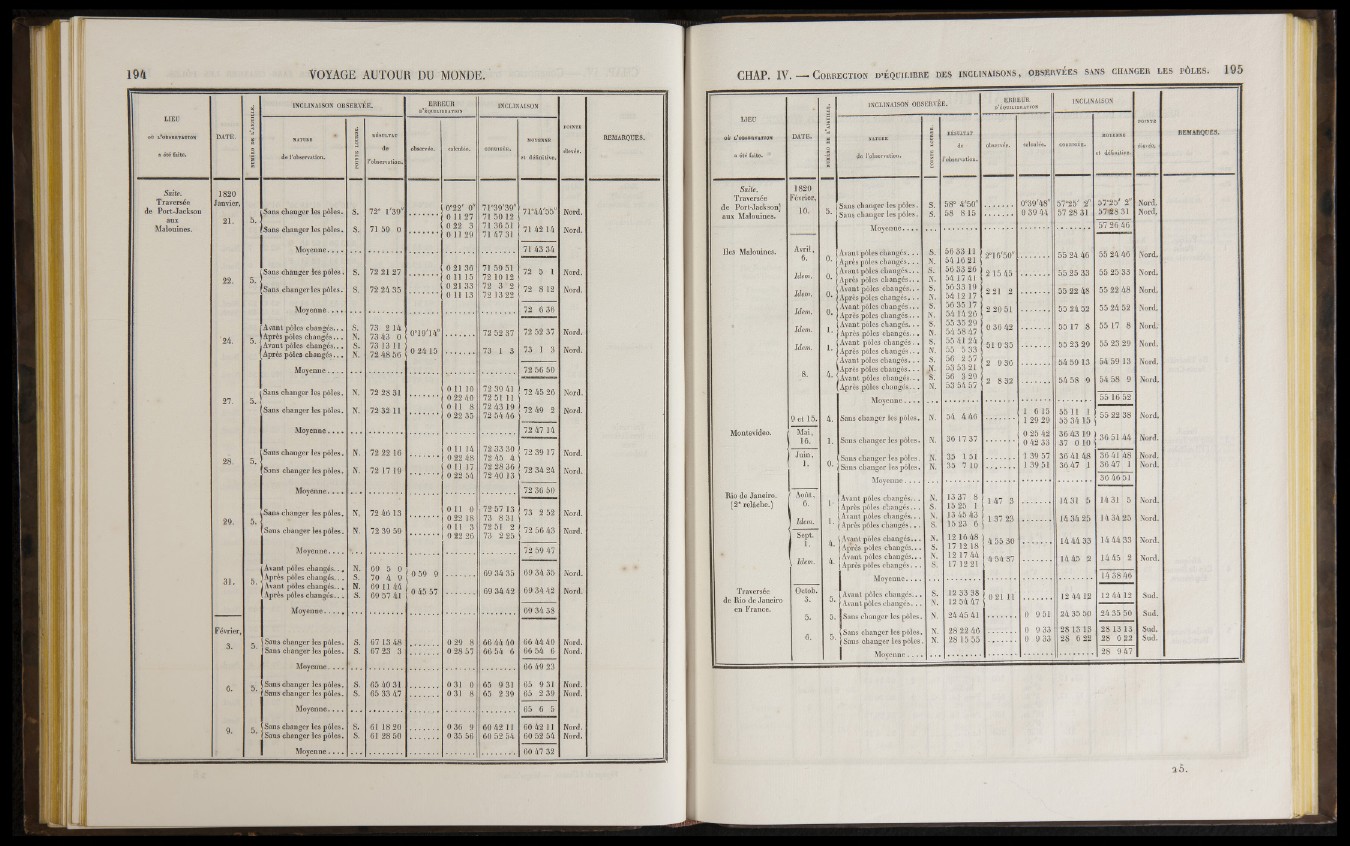 194 VOYAGE AUTOUR DU MONDE.
LIEU
où L'OBSERVATION
a été faite.
DATE.
NUMÉRO DE L'AIGUILLE.
INCLINAISON OBSERVÉE.
NATURE
de l'observation.
RÉSULTAT
de
l'observation.
ERREUR
D'ÉQUILIBRATION
observée. calculée.
INCLINAISON
MOYENNE
et définitive.
POINTE
élevée.
REMARQUES.
Suite.
Traversée
de Port-Jackson
aux
Malouines.
1820
Janvier,
21. 5. Sans changer les pôles. S. 72° 1'39" 0°22' 0" 71°39'39" 71°44'55" Nord.
0 11 27 71 50 12
Sans changer les pôles. S. 71 59 0 0 22 3 71 36 51 71 42 14 Nord.
0 11 29 71 47 31
Moyenne.... 71 43 34
22. 5. Sans changer les pôles. S. 72 21 27 0 21 36 71 59 51 72 5 1 Nord.
0 11 15 72 10 12
Sans changer les pôles. S. 72 24 35 0 21 33 72 3 2 72 8 12 Nord.
0 11 13 72 13 22
Moyenne.... 72 6 36
24. 5. Avant pôles changés... S. 73 2 14 0°19'14" 72 52 37 72 52 37 Nord.
Après pôles changés... N. 73 43 0
Avant pôles changés... S. 73 13 11 0 24 15 73 1 3 73 1 3 Nord.
Après pôles changés... N. 72 48 56
Moyenne.... 72 56 50
27. 5. Sans changer les pôles. N. 72 28 31 0 11 10 72 39 41 72 45 26 Nord.
0 22 40 72 51 11
Sans changer les pôles. N. 72 32 11 0 11 8 72 43 19 72 49 2 Nord.
0 22 35 72 54 46
Moyenne.... 72 47 14
28. 5. Sans changer les pôles. N. 72 22 16 0 11 14 72 33 30 72 39 17 Nord.
0 22 48 72 45 4
Sans changer les pôles. N. 72 17 19 0 11 17 72 28 36 72 34 24 Nord.
0 22 54 72 40 13
Moyenne.... 72 36 50
29. 5. Sans changer les pôles. N. 72 46 13 0 11 0 72 57 13 73 2 52 Nord.
0 22 18 73 8 31
Sans changer les pôles. N. 72 39 59 0 11 3 72 51 2 72 56 43 Nord.
0 22 26 73 2 25
Moyenne.... 72 59 47
31. 5. Avant pôles changés... N. 69 5 0 0 59 9 69 34 35 69 34 35 Nord.
Après pôles changés... S. 70 4 9
Avant pôles changés... N. 69 11 44 0 45 57 69 34 42 69 34 42 Nord.
Après pôles changés... S. 69 57 41
Moyenne.... 69 34 38
Février,
3. 5. Sans changer les pôles. S. 67 13 48 0 29 8 66 44 40 66 44 40 Nord.
Sans changer les pôles. S. 67 23 3 0 28 57 66 54 6 66 54 6 Nord.
Moyenne.... 66 49 23
6. 5. Sans changer les pôles. S. 65 40 31 0 31 0 65 9 31 65 9 31 Nord.
Sans changer les pôles. S. 65 33 47 0 31 8 65 2 39 65 2 39 Nord.
Moyenne.... 65 6 5
9. 5. Sans changer les pôles. S. 61 18 20 0 36 9 60 42 11 60 42 11 Nord.
Sans changer les pôles. S. 61 28 50 0 35 56 60 52 54 60 52 54 Nord.
Moyenne.... 60 47 32
CHAP. IV. — CORRECTION D'ÉQUILIBRE DES INCLINAISONS, OBSERVÉES SANS CHANGER LES PÔLES. 195
LIEU
où L'OBSERVATION
a été faite.
DATE.
INCLINAISON OBSERVÉE.
NATURE
de l'observation.
RÉSULTAT
de
l'observation.
ERREUR
D'ÉQUILIBRATION
observée. calculée.
INCLINAISON
MOYENNE
et définitive.
POINTE
élevée.
REMARQUES.
Suite.
Traversée
de Port-Jackson
aux Malouines.
1820
Février,
10. 5. Sans changer les pôles. S. 58° 4'50" 0°39'48" 57°25' 2" 57°25' 2" Nord.
Sans changer les pôles. S. 58 8 15 0 39 44 57 28 31 57 28 31 Nord.
Moyenne.... 57 26 46
Iles Malouines.
Avril,
6. 0. Avant pôles changés... S. 56 33 11 2°16'50" 55 24 46 55 24 46 Nord.
Après pôles changés... N. 54 16 21
Idem. 0. Avant pôles changés... S. 56 33 26 2 15 45 55 25 33 55 25 33 Nord.
Après pôles changés... N. 54 17 41
Idem. 0. Avant pôles changés... S. 56 33 19 2 21 2 55 22 48 55 22 48 Nord.
Après pôles changés... N. 54 12 17
Idem. 0. Avant pôles changés... S. 56 35 17 2 20 51 55 24 52 55 24 52 Nord.
Après pôles changés... N. 54 14 26
Idem. 1. Avant pôles changés... S. 55 35 29 0 36 42 55 17 8 55 17 8 Nord.
Après pôles changés... N. 54 58 47
Idem. 1. Avant pôles changés... S. 55 41 24 51 9 35 55 23 29 55 23 29 Nord.
Après pôles changés... N. 55 5 33
8. 4. Avant pôles changés... S. 56 2 57 2 9 36 54 59 13 54 59 13 Nord.
Après pôles changés... N. 53 53 21
Avant pôles changés... S. 56 3 29 2 8 32 54 58 9 54 58 9 Nord.
Après pôles changés... N. 53 54 57
Moyenne.... 55 16 52
9 et 15. 4. Sans changer les pôles. N. 54 4 46 1 6 15 55 11 1 55 22 38 Nord.
1 29 29 55 34 15
Montevideo.
Mai,
16. 1. Sans changer les pôles. N. 36 17 37 0 25 42 36 43 19 36 51 44 Nord.
0 42 33 37 0 10
Juin,
1. 0. Sans changer les pôles. N. 35 1 51 1 39 57 36 41 48 36 41 48 Nord.
Sans changer les pôles. N. 35 7 10 1 39 51 36 47 1 36 47 1 Nord.
Moyenne.... 36 46 51
Rio de Janeiro.
(2e relâche.)
Août,
6. 1. Avant pôles changés... N. 13 37 8 1 47 3 14 31 5 14 31 5 Nord.
Après pôles changés... S. 15 25 1
Idem. 1. Avant pôles changés... N. 13 45 43 1 37 23 14 34 25 14 34 25 Nord.
Après pôles changés... S. 15 23 6
Sept.
1. 4. Avant pôles changés... N. 12 16 48 4 55 30 14 44 33 14 44 33 Nord.
Après pôles changés... S. 17 12 18
Idem. 4. Avant pôles changés... N. 12 17 44 4 54 37 14 45 2 14 45 2 Nord.
Après pôles changés... S. 17 12 21
Moyenne.... 14 38 46
Traversée
de Rio de Janeiro
en France.
Octob.
3. 5. Avant pôles changés... S. 12 33 38 0 21 11 12 44 12 12 44 12 Sud.
Avant pôles changés... N. 12 54 47
5. 5. Sans changer les pôles. N. 24 45 41 0 9 51 24 35 50 24 35 50 Sud.
6. 5. Sans changer les pôles. N. 28 22 46 0 9 33 28 13 13 28 13 13 Sud.
Sans changer les pôles. N. 28 15 55 0 9 33 28 6 22 28 6 22 Sud.
Moyenne.... 28 9 47
25.